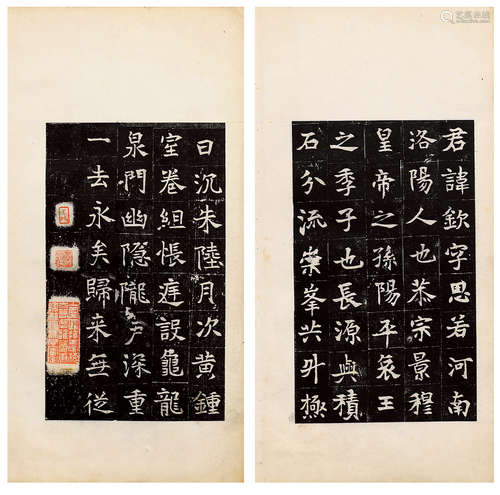 君諱欽字思若河南
洛陽人也恭宗景穆
皇帝之孫陽平哀王
之季子也長源與積
石分流崇峯共升極
日沉朱陸月次黃鍾
室卷組帳庭設龜龍
泉門幽隐隴戶深重
一去永矣歸来無従